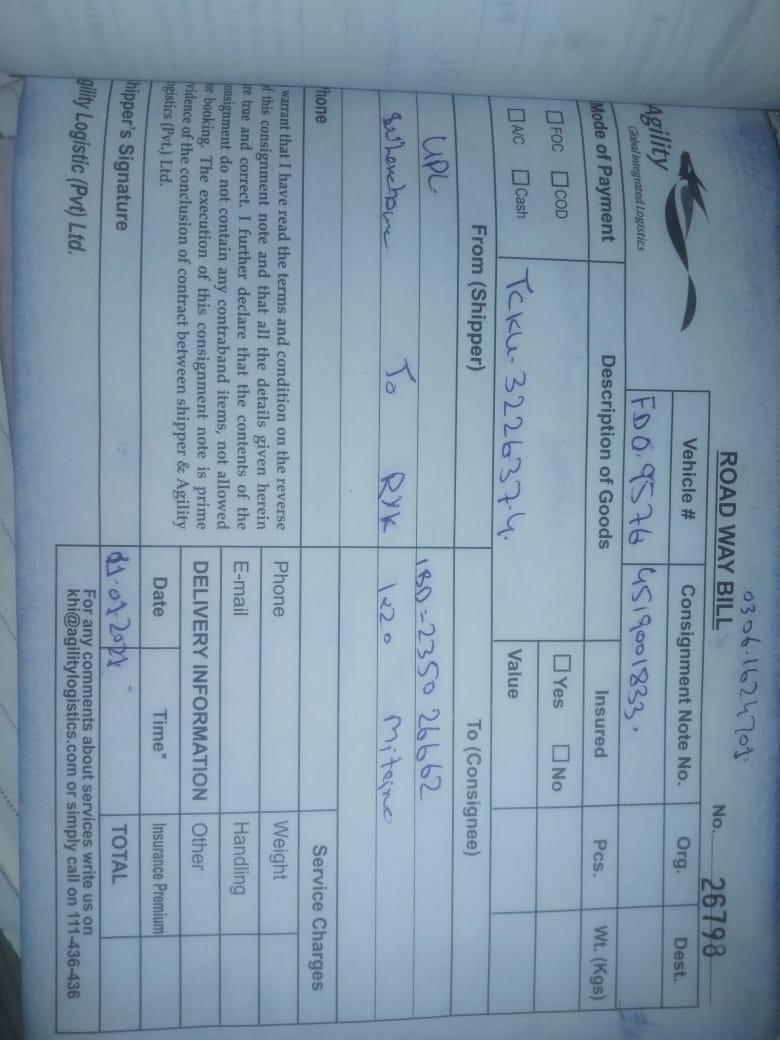 0306.1624701
ROAD WAY BILL
No. 26798
Agility
Global Integrated Logistics
Vehicle # Consignment Note No. Org. Dest.
FDO.9576 4519001833.
Mode of Payment Description of Goods Insured Pcs. Wt. (Kgs)
FOC COD Yes No
A/C Cash TCKU-322637-4. Value
From (Shipper) To (Consignee)
UPL IBD=2350 26662
To RYK 1x20
hone Service Charges
warrant that I have read the terms and condition on the reverse
of this consignment note and that all the details given herein
are true and correct. I further declare that the contents of the
onsignment do not contain any contraband items, not allowed
or booking. The execution of this consignment note is prime
vidence of the conclusion of contract between shipper & Agility
ogistics (Pvt.) Ltd.
Phone Weight
E-mail Handling
DELIVERY INFORMATION Other
Date Time* Insurance Premium
hipper's Signature 01-01-2021 TOTAL
gility Logistic (Pvt) Ltd.
For any comments about services write us on
khi@agilitylogistics.com or simply call on 111-436-436